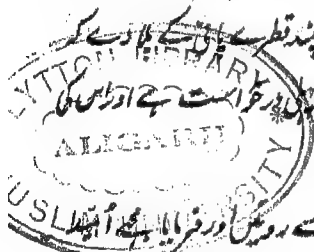 چند قطرے پانی کے پلا دے کہ
LYTTON LIBRARY
درخواست ہے اور اس کی
ALIGARH
MUSLIM UNIVERSITY
سے روئیں اور فرمایا